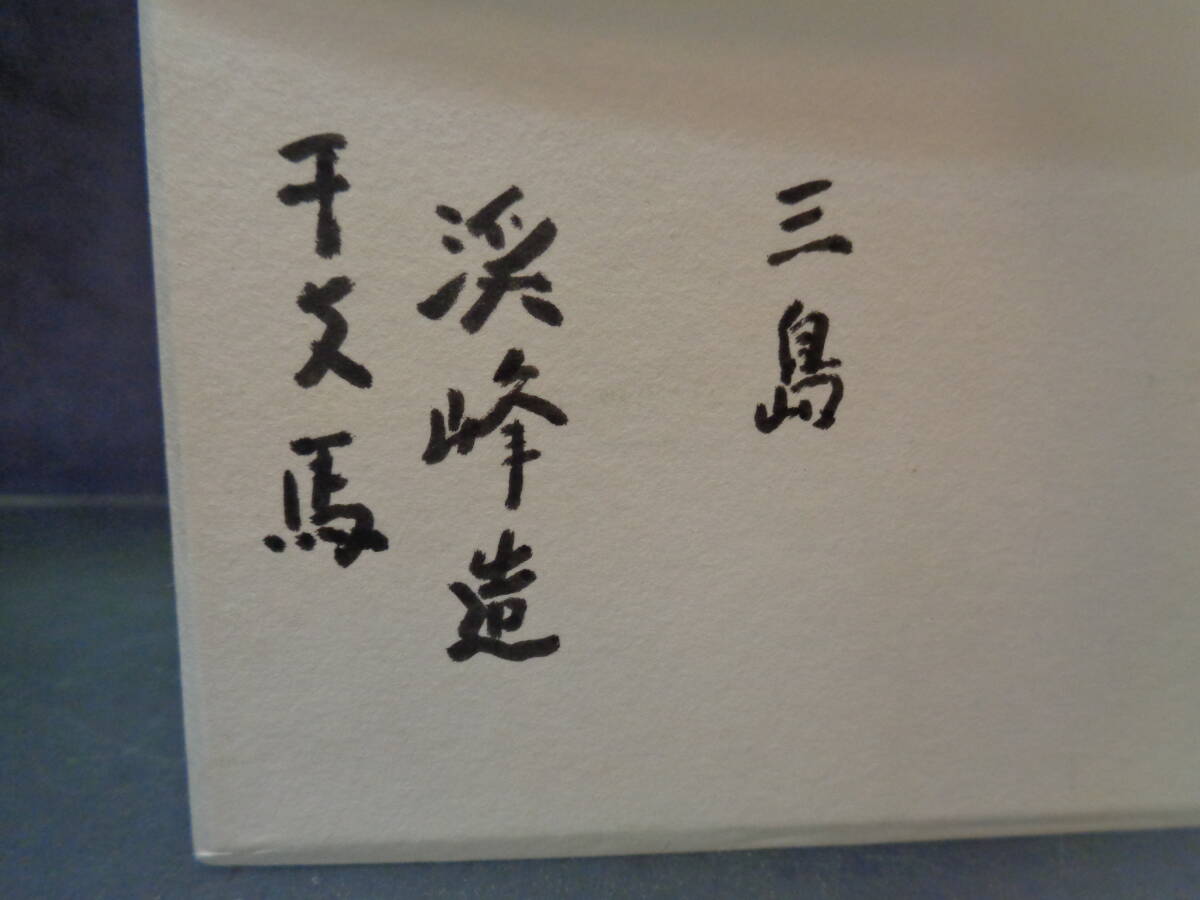 三島
渓峰造
干支馬